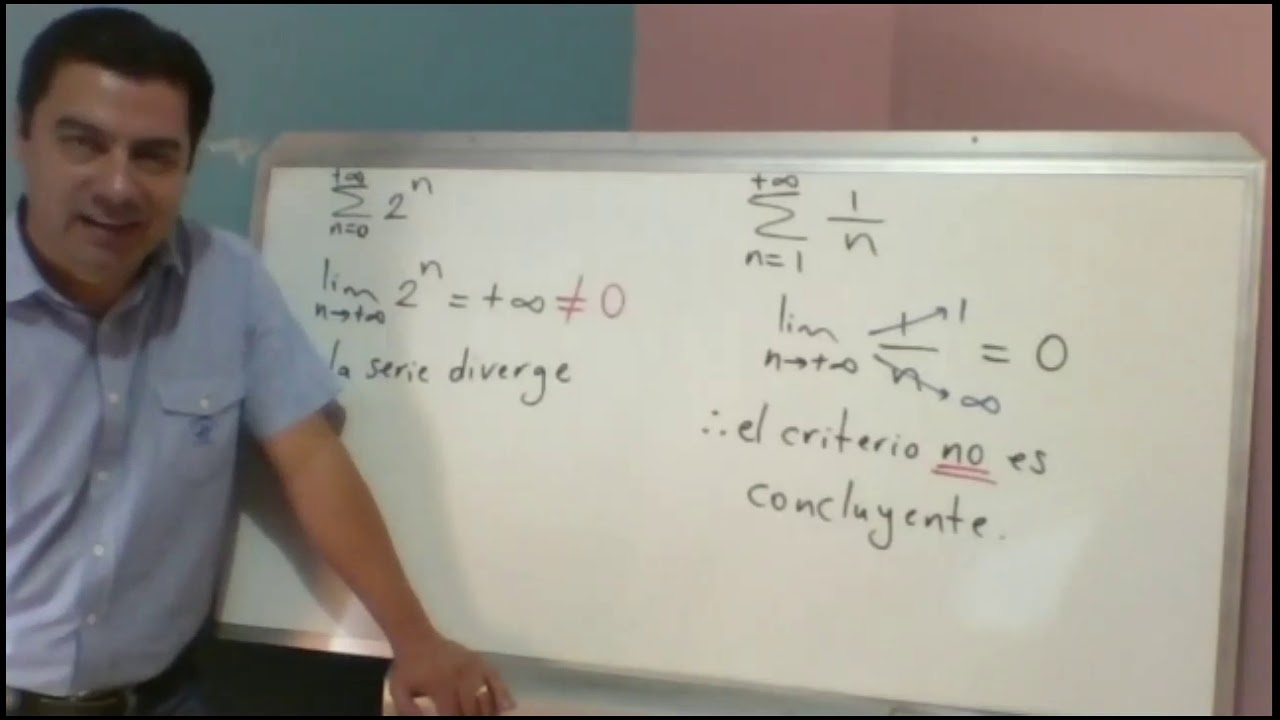 +∞
∑ 2ⁿ
n=0
lim 2ⁿ = +∞ ≠ 0
n→+∞
la serie diverge
+∞
∑ 1/n
n=1
lim 1/n = 0
n→+∞
1
∞
∴ el criterio no es
concluyente.